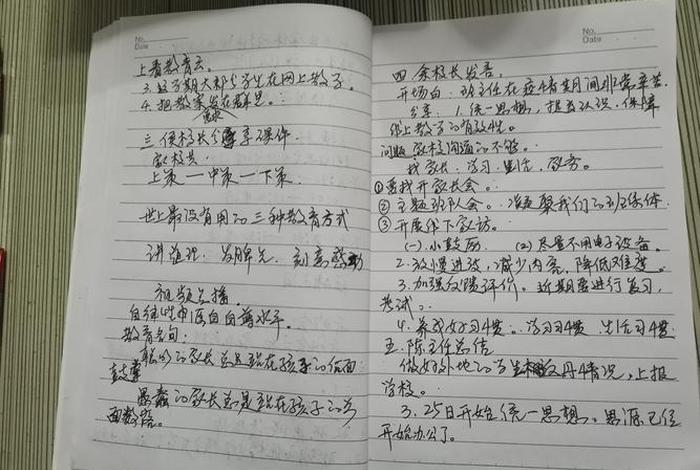 No.
Date
上看教育云。
3. 这了期大部分学生在网上教学。
4. 把教案发在群里。
三 侯校长分享课件
家校共
上策—中策—下策.
世上最没有用的三种教育方式
讲道理. 发脾气. 刻意感动
视频点播.
自律性
教育名句:
聪明的家长总是站在孩子的后面
鼓掌
愚蠢的家长总是站在孩子的前
面
No.
Date
四 余校长发言.
开场白: 班主任在疫情期间非常辛苦.
分享: 1. 统一思想, 提高认识, 保障
线上教学的有效性。
问题 家校沟通的不够。
找家长: 学习. 生活. 家务.
①要找开家长会。
② 主题班队会。 凝聚我们的班集体
③ 开展线下家访。
(一) 小鼓励 (二) 尽量不用电子设备。
2. 放慢进度, 减少内容, 降低难度。
3. 加强反馈评价. 近期要进行复习,
考试。
4. 养成好习惯。 学习习惯 生活习惯
五. 陈主任总结
做好外地的学生情况, 上报
学校。
3.25日开始统一思想。 思源已经
开始办公了。